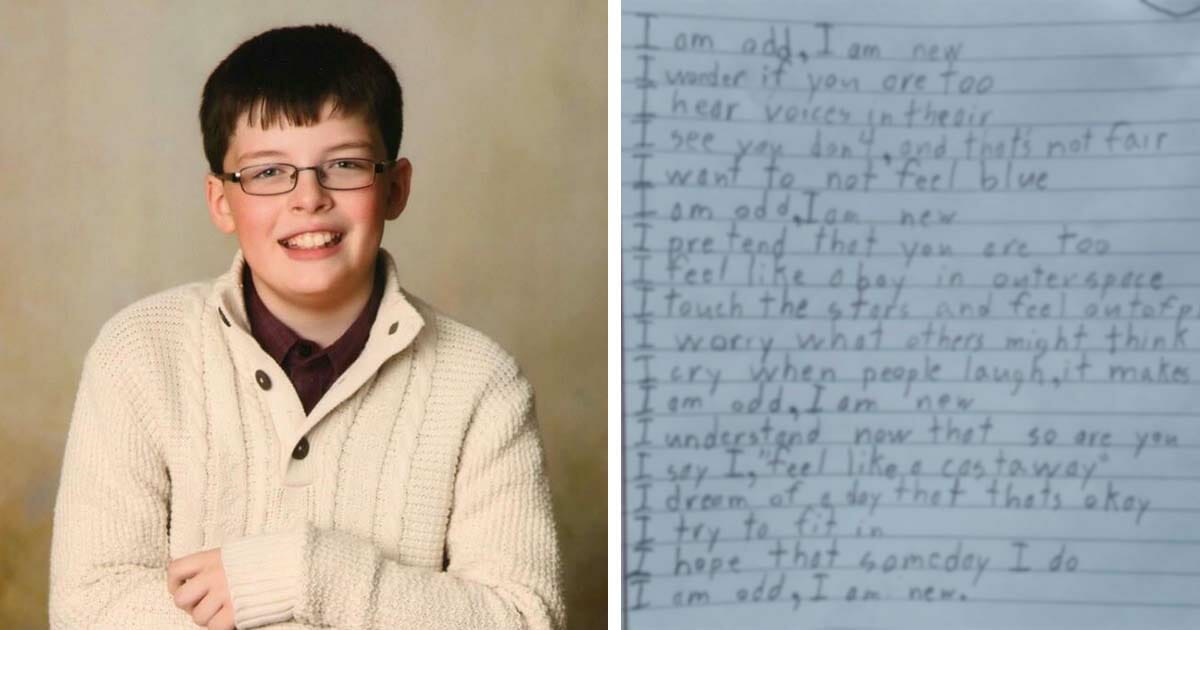 I am odd, I am new
I wonder if you are too
I hear voices in the air
I see you don't, and that's not fair
I want to not feel blue
I am odd, I am new
I pretend that you are too
I feel like a boy in outerspace
I touch the stars and feel out of p
I worry what others might think
I cry when people laugh, it makes
I am odd, I am new
I understand now that so are you
I say I, "feel like a castaway"
I dream of a day that thats okay
I try to fit in
I hope that someday I do
I am odd, I am new.